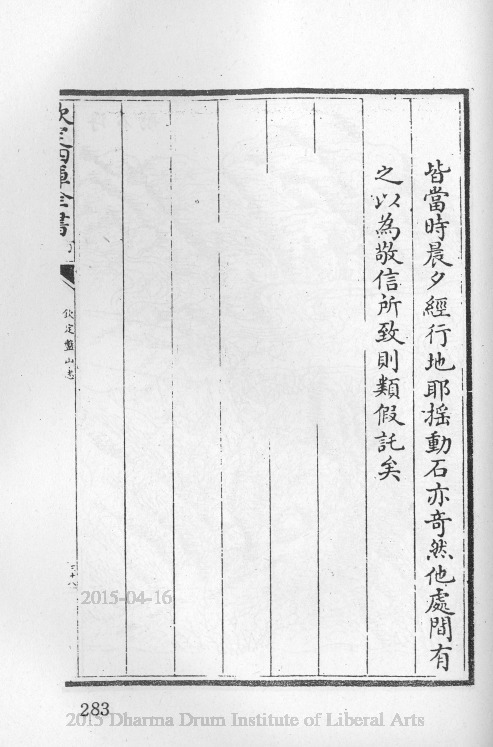 皆當時晨夕經行地耶揺動石亦竒然他處間有
之以為敬信所致則類假託矣
欽定四庫全書
欽定盤山志
283
2015-04-16
2015 Dharma Drum Institute of Liberal Arts